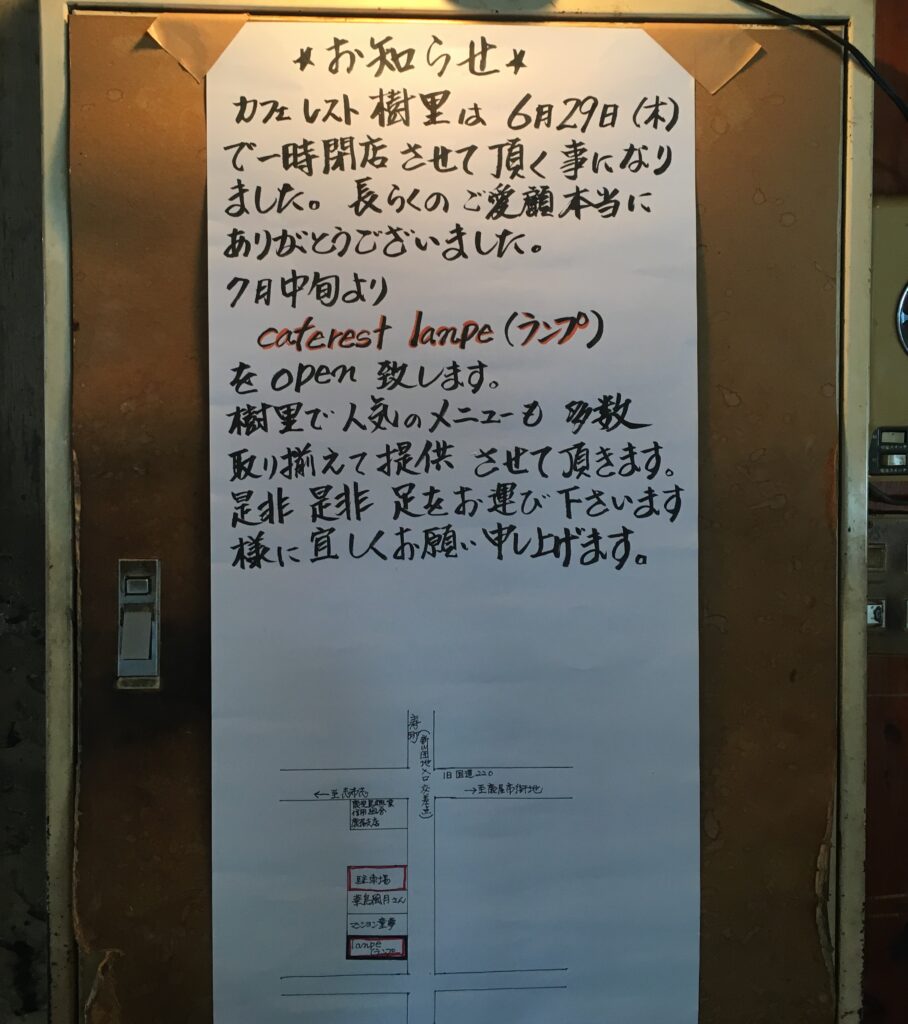 *お知らせ*
カフェレスト樹里は6月29日(木)
で一時閉店させて頂く事になり
ました。長らくのご愛顧本当に
ありがとうございました。
7月中旬より
caferest lanpe(ランプ)
をopen致します。
樹里で人気のメニューも多数
取り揃えて提供させて頂きます。
是非是非足をお運び下さいます
様に宜しくお願い申し上げます。
寿町
(新川団地入口交差点)
旧国道220
←至志布志
→至鹿屋市街地
鹿児島興業
信用組合
鹿屋支店
駐車場
菓島風月さん
マンション童夢
lanpe
ランプ